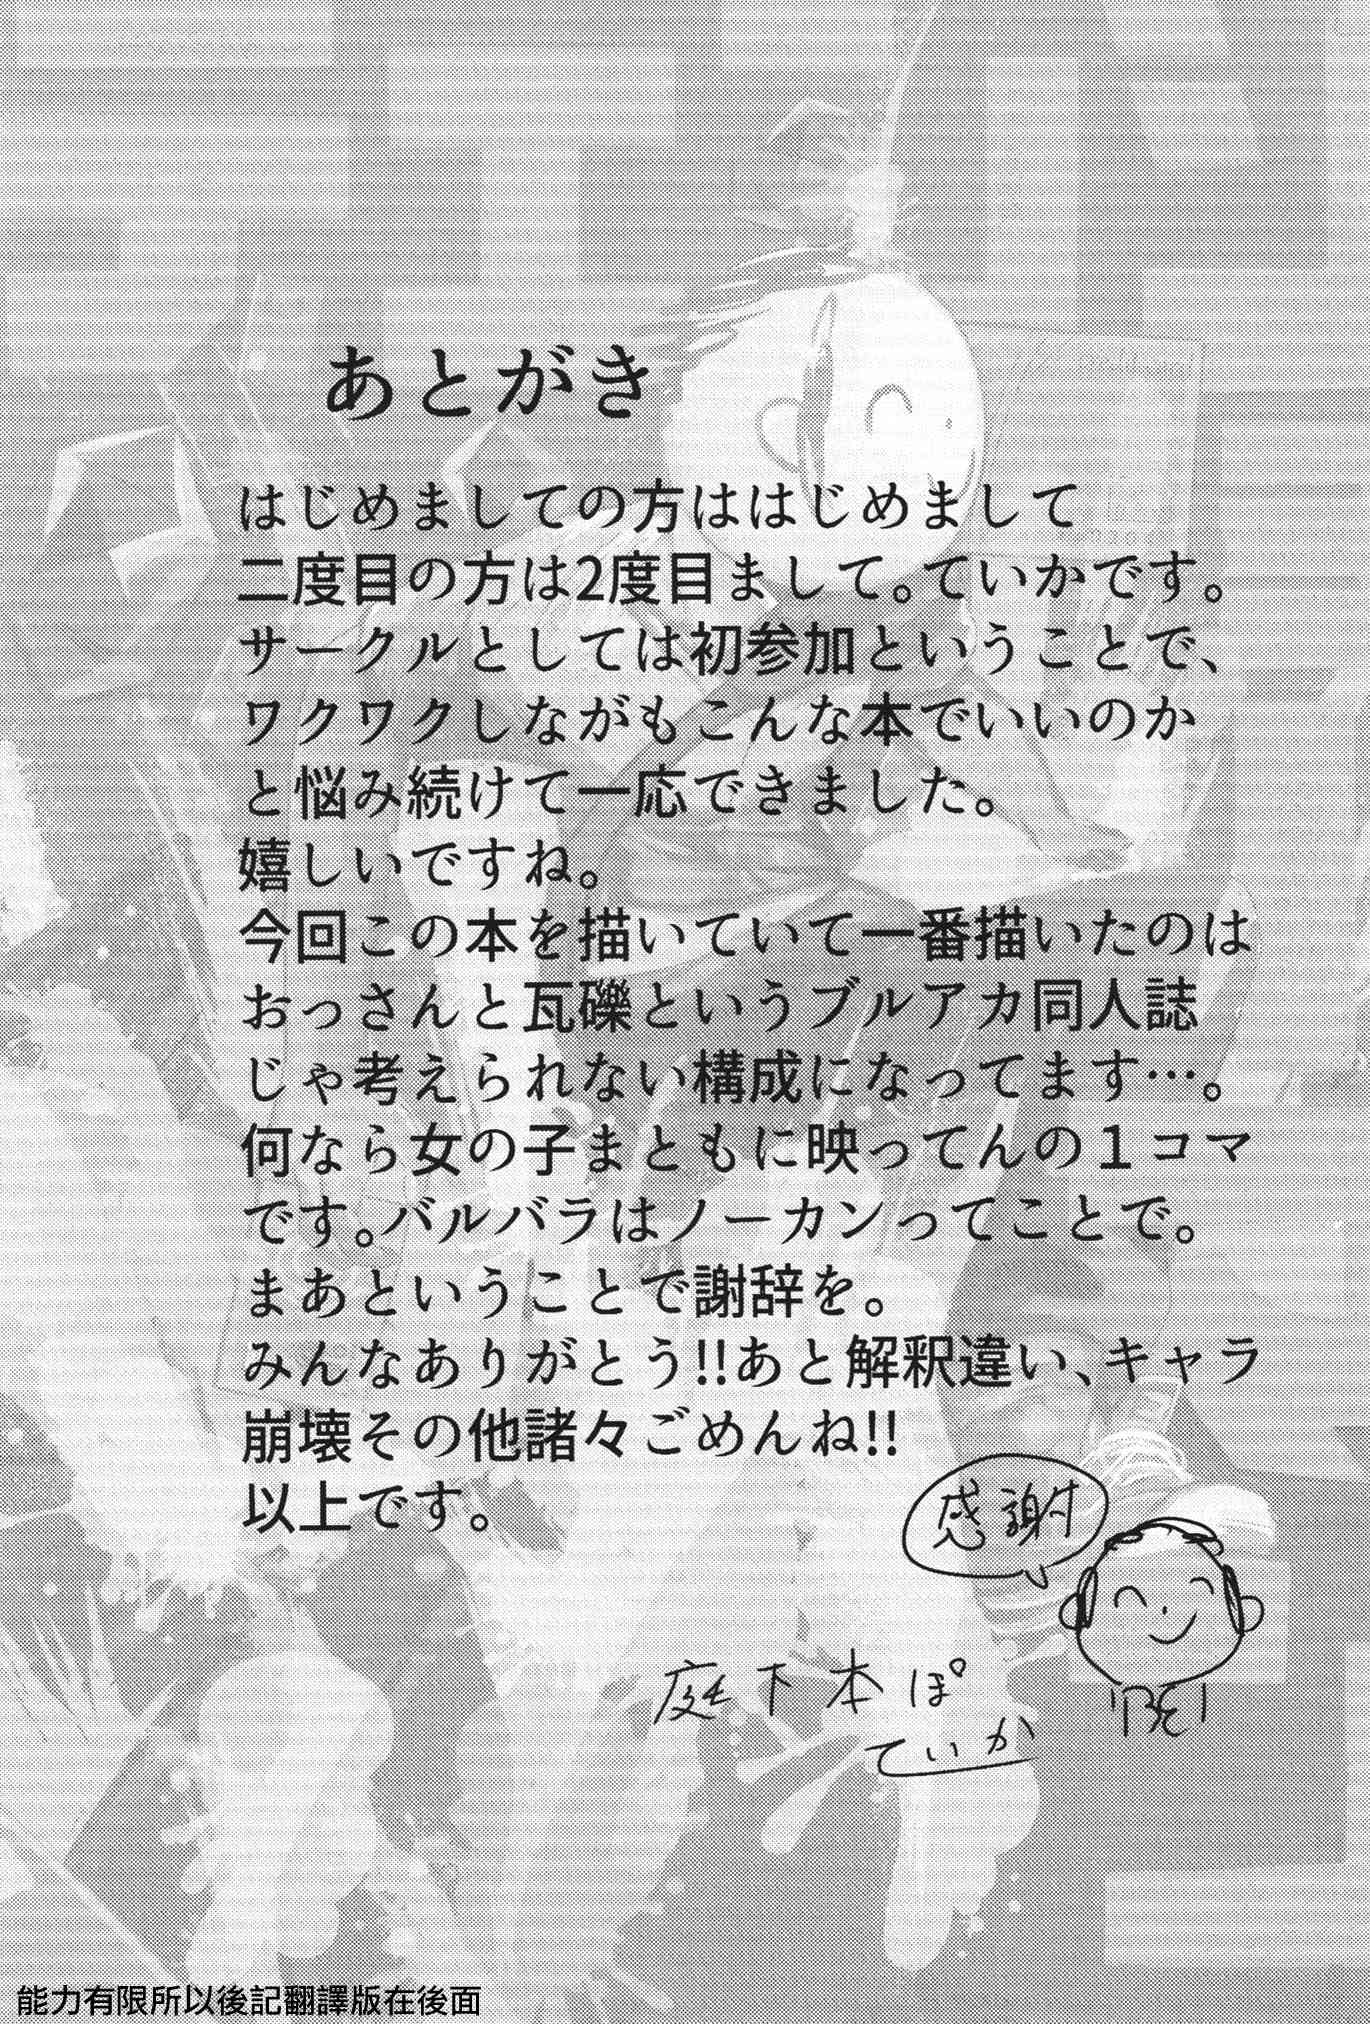 あとがき
はじめましての方ははじめまして
二度目の方は2度目まして。ていかです。
サークルとしては初参加ということで、
ワクワクしながもこんな本でいいのか
と悩み続けて一応できました。
嬉しいですね。
今回この本を描いていて一番描いたのは
おっさんと瓦礫というブルアカ同人誌
じゃ考えられない構成になってます…。
何なら女の子まともに映ってんの１コマ
です。バルバラはノーカンってことで。
まあということで謝辞を。
みんなありがとう!!あと解釈違い、キャラ
崩壊その他諸々ごめんね!!
以上です。
感謝
庭下本ぽ
ていか
能力有限所以後記翻譯版在後面